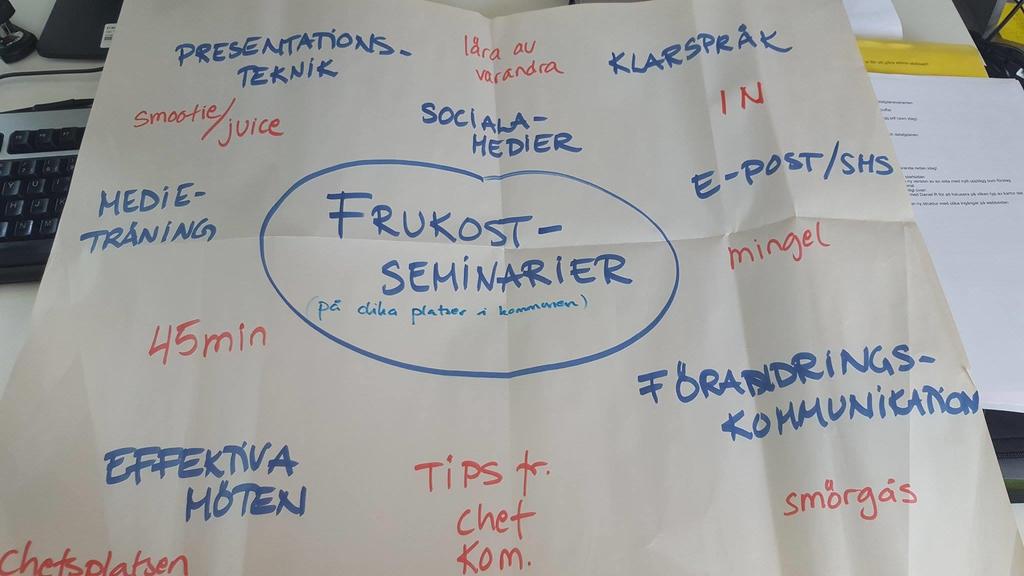 PRESENTATIONS-
TEKNIK
lära av
varandra
KLARSPRÅK
smootie/juice
SOCIALA-
MEDIER
IN
E-POST/SMS
MEDIE-
TRÄNING
FRUKOST-
SEMINARIER
(på olika platser i kommunen)
mingel
45min
FÖRANDRINGS-
KOMMUNIKATION
EFFEKTIVA
MÖTEN
TIPS fr.
chef
kom.
smörgås
Chefsplatsen